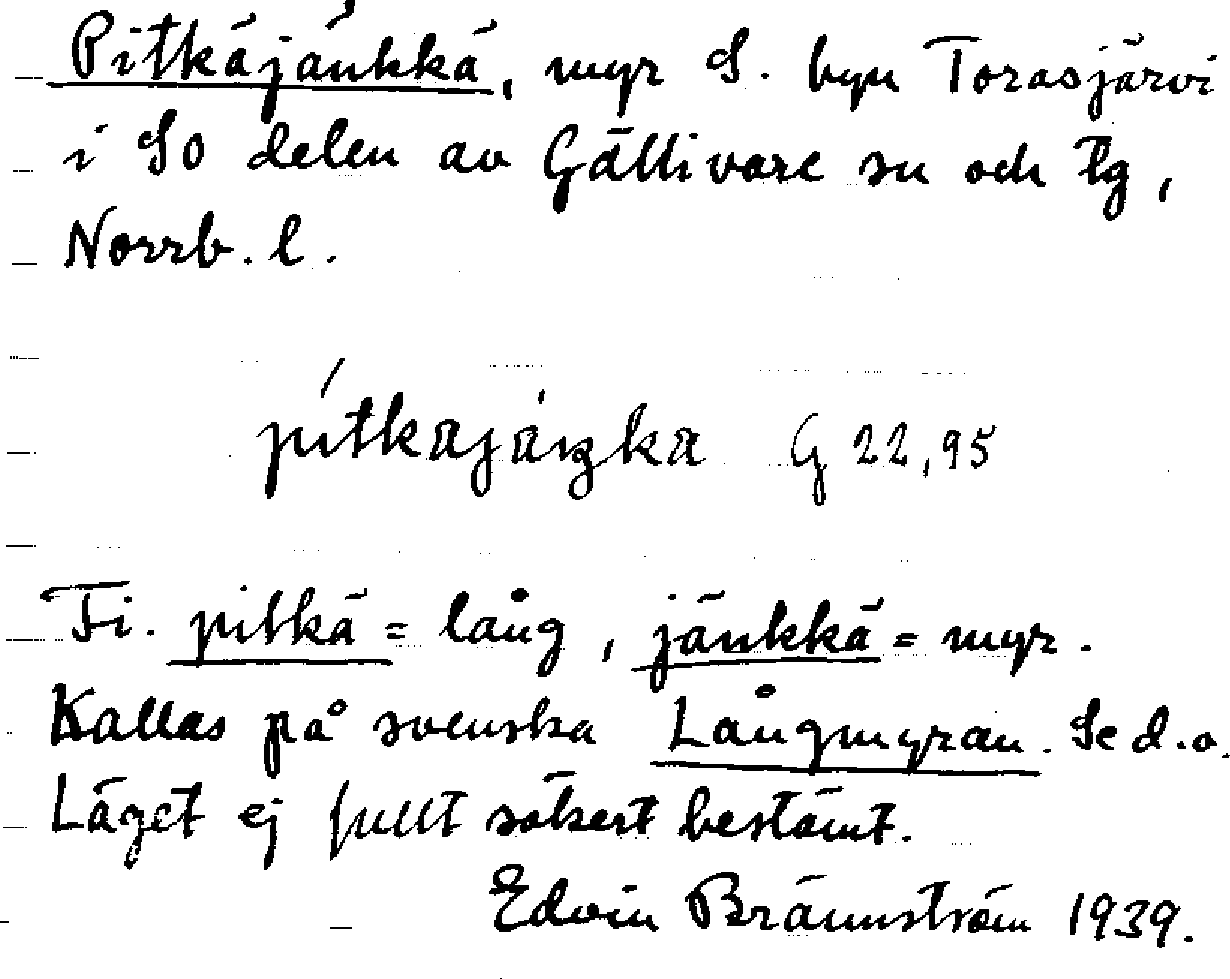 Pitkäjänkkä, myr S. byn Torasjärvi
i SO delen av Gällivare sn och tg,
Norrb. l.
pítkajáŋka G 22,95
Fi. pitkä = lång, jänkkä = myr.
Kallas på svenska Långmyran. Se d.o.
Läget ej fullt säkert bestämt.
Edvin Brännström 1939.